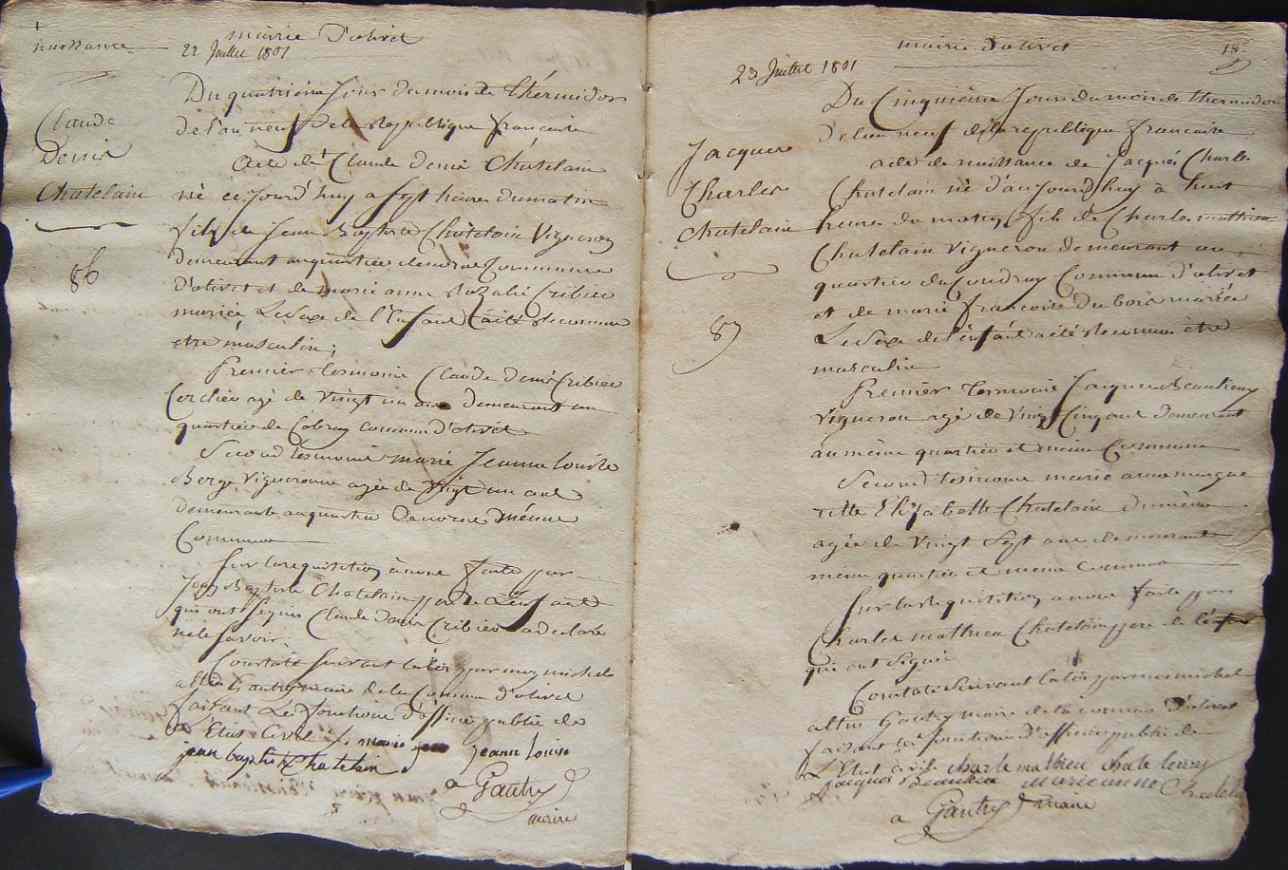 mairie D'olivet
naissance 22 Juillet 1801
Claude
Denis
Chatelain
86
Du quatrième Jour du mois de thérmidor
de l'an neuf de la République francaise
Acte de Claude denis Châtelain
né ce Jourd'huy a sept heures du matin
fils de Jean Baptiste Châtelain Vigneron
demeurant au quartier Commune
d'olivet et de marie anne Rozalie Cribier
mariée Le Sexe de l'Enfant a été Reconnu
etre masculin;
Premier temoin Claude denis Cribier
Cerclier agé de Vingt un ans demeurant au
quartier de Cobray commune d'olivet
Second temoin marie Jeanne louise
Berge Vigneronne agée de Vingt un ans
demeurante au quartier même
Commune
Sur la requisition à nous faite par
Jean Baptiste Chatelain pere de L'enfant
qui ont Signés Claude denis Cribier a declaré
ne le savoir.
Constaté suivant la loi par moy michel
altin Gautry maire de la Commune d'olivet
faisant Les fonctions d'officier public de
L'Etat Civil marie jeanne louise
jean baptiste Chatelain
a Gautry
maire
mairie d'olivet
23 Juillet 1801
Jacques
Charles
Chatelain
87
Du Cinquième Jour du mois de thermidor
de l'an neuf de la republique francaise
acte de naissance de Jacques Charles
Chatelain né d'aujourd'huy à huit
heures du matin fils de Charles mathieu
Chatelain vigneron demeurant au
quartier du Coudray Commune d'olivet
et de marie francoise Dubois mariée
Le Sexe de l'enfant a été Reconnu être
masculin
Premier temoin Jacques Beaulieu
vigneron agé de Vingt Cinq ans demeurant
au même quartier et même Commune
Second temoin marie anne
Elizabette Chatelain
agée de Vingt Sept ans demeurante
même quartier et même Commune
Sur la Requisition a nous faite par
Charles mathieu Chatelain pere de l'enfant
qui ont Signé
Constaté Suivant la loi par moi michel
altin Gautry maire de la commune d'olivet
faisant les fonctions d'officier public de
L'Etat civil charle mathieu
jacques marie anne Chatelain
a Gautry maire